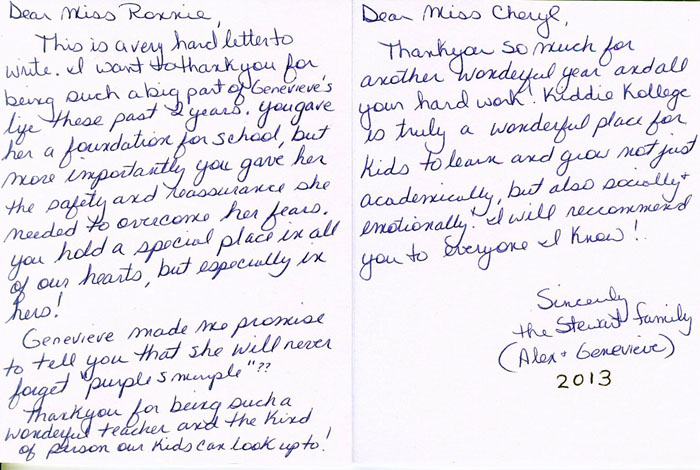 Dear Miss Ronnie,
This is a very hard letter to
write. I want to thank you for
being such a big part of Genevieve's
life these past 2 years. You gave
her a foundation for school, but
more importantly you gave her
the safety and reassurance she
needed to overcome her fears.
you hold a special place in all
of our hearts, but especially in
hers!
Genevieve made me promise
to tell you that she will never
forget "purple smurple"??
Thankyou for being such a
wonderful teacher and the kind
of person our kids can look up to!
Dear Miss Cheryl,
Thankyou so much for
another wonderful year and all
your hard work! Kiddie Kollege
is truly a wonderful place for
kids to learn and grow not just
academically, but also socially +
emotionally! I will reccommend
you to everyone I know!
Sincerely
the Stewart family
(Alex + Genevieve)
2013